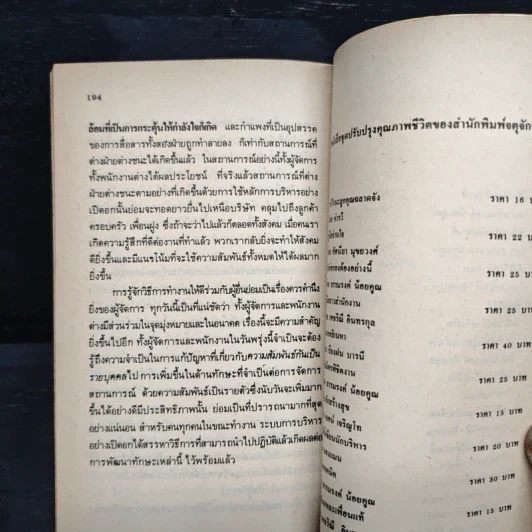 194
ล้อมที่เป็นการกระตุ้นให้กำลังใจก็เกิด และกำแพงที่เป็นอุปสรรค
ของการสื่อสารทั้งสองฝ่ายถูกทำลายลง ก็เท่ากับสถานการณ์ที่
ต่างฝ่ายต่างชนะได้เกิดขึ้นแล้ว ในสถานการณ์อย่างนี้ทั้งผู้จัดการ
ทั้งพนักงานต่างได้ผลประโยชน์ ที่จริงแล้วสถานการณ์ที่ต่าง
ฝ่ายต่างชนะตามอย่างที่เกิดขึ้นด้วยการใช้หลักการบริหารอย่าง
เปิดอกนั้นย่อมจะทอดยาวยื่นไปเหนือบริษัท คลุมไปถึงลูกค้า
ครอบครัว เพื่อนฝูง ซึ่งถ้าจะว่าไปแล้วก็ตลอดทั้งสังคม เมื่อคนเรา
เกิดความรู้สึกที่ดีต่องานที่ทำแล้ว พวกเรากลับยิ่งจะทำให้สังคม
ดียิ่งขึ้นและมีแนวโน้มที่จะใช้ความสัมพันธ์ทั้งหมดให้ได้ผลมาก
ยิ่งขึ้น
การรู้จักวิธีการทำงานให้ดีร่วมกับผู้อื่นย่อมเป็นเรื่องควรคำนึง
ยิ่งของผู้จัดการ ทุกวันนี้เป็นที่แน่ชัดว่า ทั้งผู้จัดการและพนักงาน
ต่างมีส่วนร่วมในจุดมุ่งหมายและในอนาคต เรื่องนี้จะมีความสำคัญ
ยิ่งขึ้นไปอีก ทั้งผู้จัดการและพนักงานในวันพรุ่งนี้จำเป็นจะต้อง
รู้ถึงความจำเป็นในการแก้ปัญหาที่เกี่ยวกับความสัมพันธ์กันเป็น
รายบุคคลไป การเพิ่มขึ้นในด้านทักษะที่จำเป็นต่อการจัดการ
สถานการณ์ ด้วยความสัมพันธ์เป็นรายตัวซึ่งนับวันจะเพิ่มมาก
ขึ้นได้อย่างดีมีประสิทธิภาพนั้น ย่อมเป็นที่ปรารถนามากที่สุด
อย่างแน่นอน สำหรับคนทุกคนในขณะทำงาน ระบบการบริหาร
อย่างเปิดอกได้สรรหาวิธีการที่สามารถนำไปปฏิบัติแล้วเกิดผลต่อ
การพัฒนาทักษะเหล่านี้ ไว้พร้อมแล้ว
ปรับปรุงคุณภาพชีวิตของสำนักพิมพ์จตุจัก
ราคา 16
ราคา 22
ราคา 25
ทัศนียา บุษยวงศ์
ราคา 22
ธรรมรงค์ น้อยคูณ
ราคา 25
ราคา 40
ราคา 25
ธรรมรงค์ น้อยคูณ
ราคา 15
เจริญไท
ราคา 20
ราคา 30
น้อยคูณ
ราคา 15